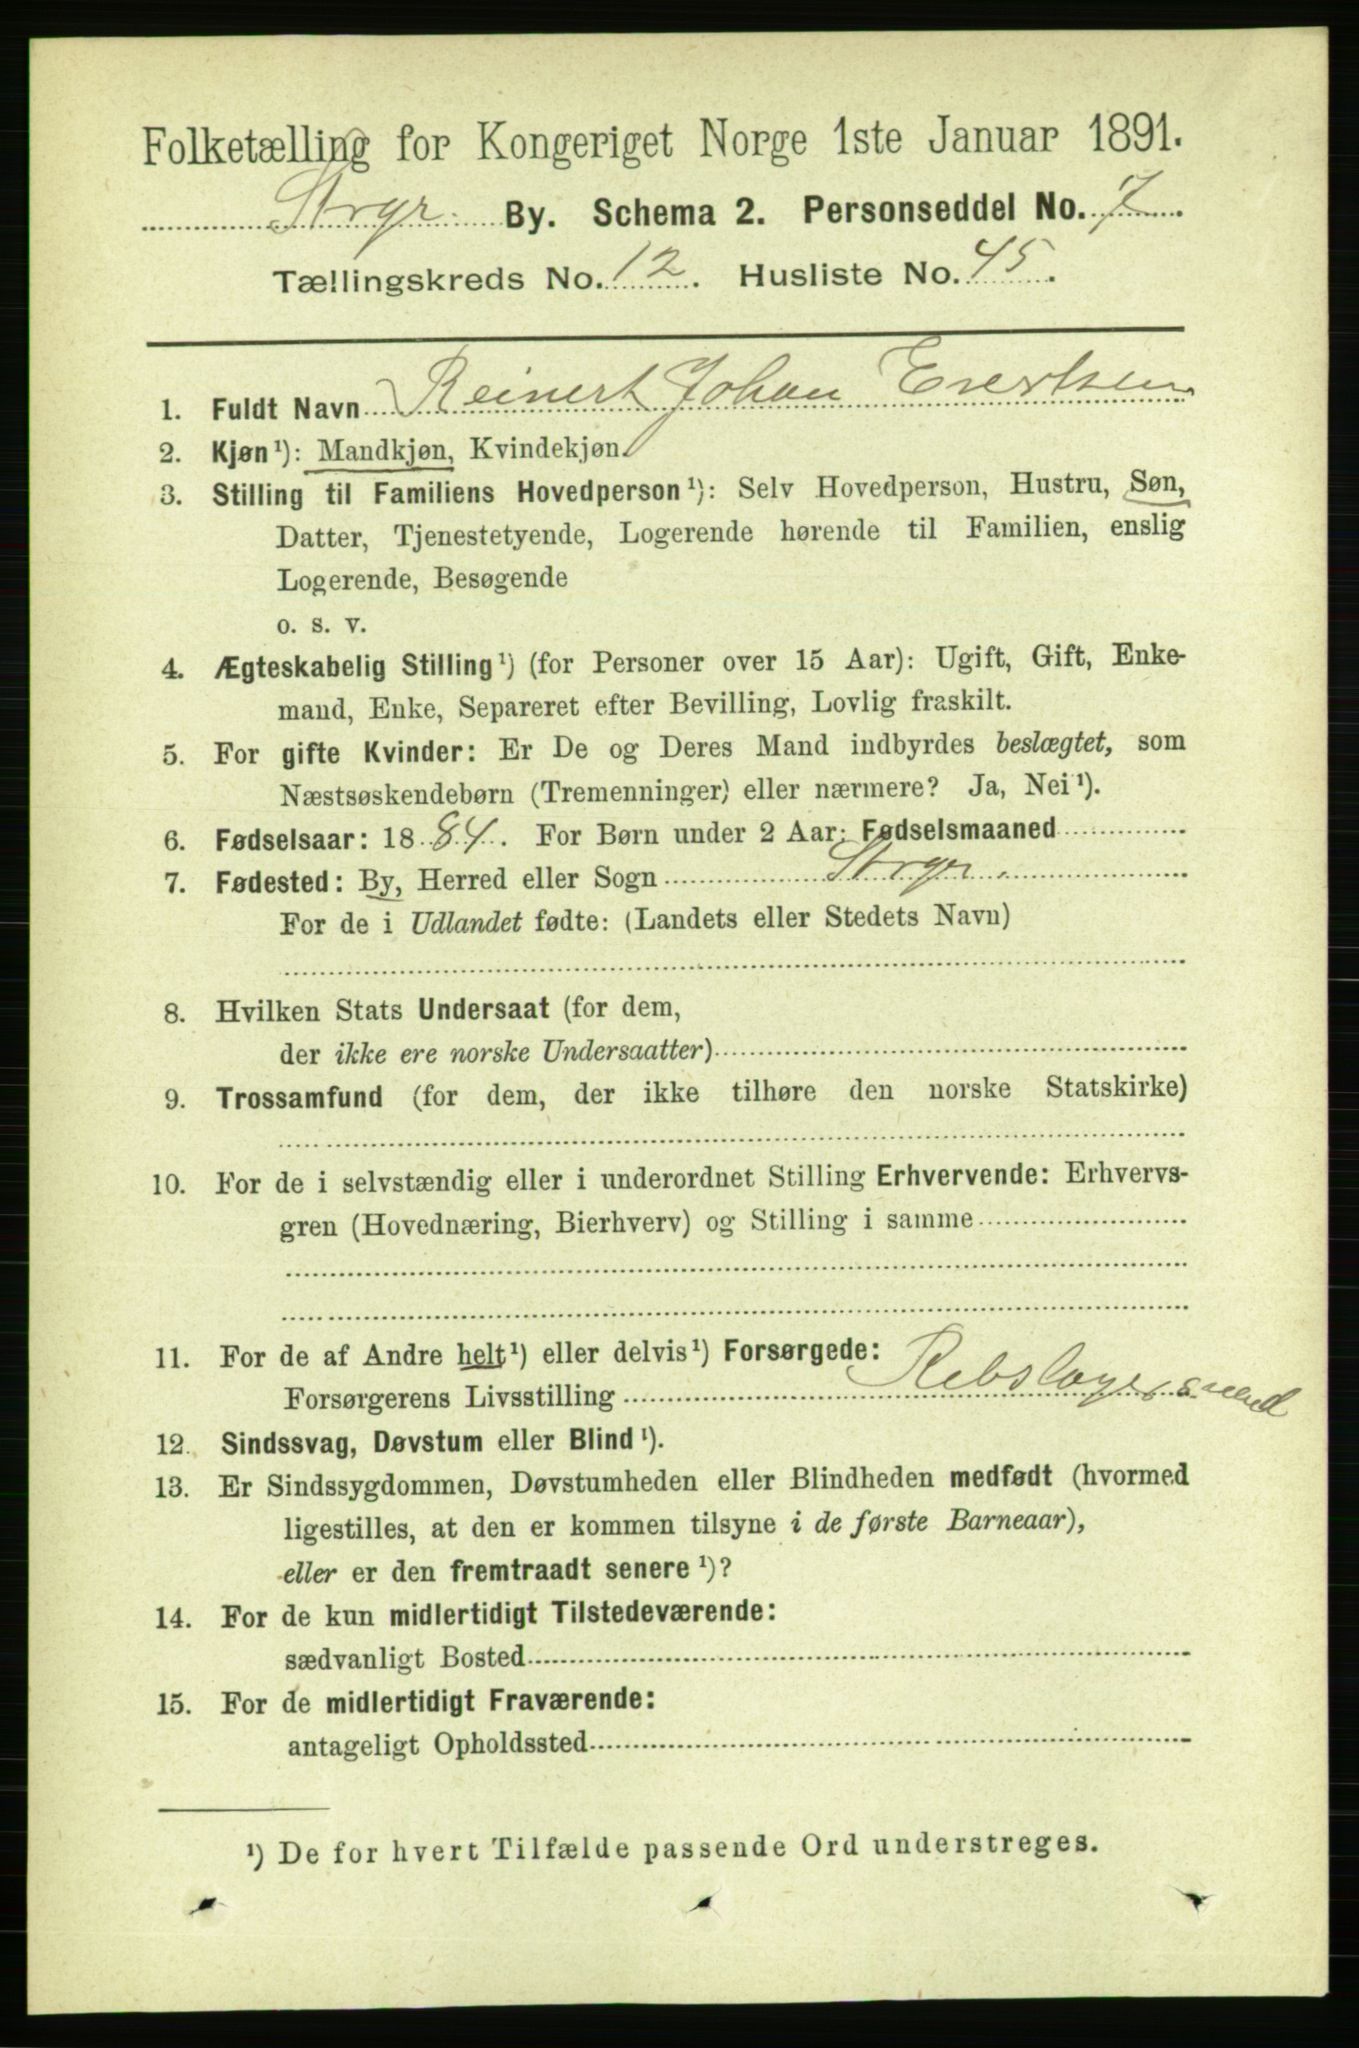 Folketælling for Kongeriget Norge 1ste Januar 1891.
Svgr. By. Schema 2. Personseddel No. 7
Tællingskreds No. 12. Husliste No. 45.
1. Fuldt Navn Reinert Johan Evertsen
2. Kjøn¹): Mandkjøn, Kvindekjøn.
3. Stilling til Familiens Hovedperson¹): Selv Hovedperson, Hustru, Søn,
Datter, Tjenestetyende, Logerende hørende til Familien, enslig
Logerende, Besøgende
o. s. v.
4. Ægteskabelig Stilling¹) (for Personer over 15 Aar): Ugift, Gift, Enke-
mand, Enke, Separeret efter Bevilling, Lovlig fraskilt.
5. For gifte Kvinder: Er De og Deres Mand indbyrdes beslægtet, som
Næstsøskendebørn (Tremenninger) eller nærmere? Ja, Nei¹).
6. Fødselsaar: 1884. For Børn under 2 Aar: Fødselsmaaned
7. Fødested: By, Herred eller Sogn Svgr.
For de i Udlandet fødte: (Landets eller Stedets Navn)
8. Hvilken Stats Undersaat (for dem,
der ikke ere norske Undersaatter)
9. Trossamfund (for dem, der ikke tilhøre den norske Statskirke)
10. For de i selvstændig eller i underordnet Stilling Erhvervende: Erhvervs-
gren (Hovednæring, Bierhverv) og Stilling i samme
11. For de af Andre helt¹) eller delvis¹) Forsørgede:
Forsørgerens Livsstilling Rebslagersvend
12. Sindssvag, Døvstum eller Blind¹).
13. Er Sindssygdommen, Døvstumheden eller Blindheden medfødt (hvormed
ligestilles, at den er kommen tilsyne i de første Barneaar),
eller er den fremtraadt senere¹)?
14. For de kun midlertidigt Tilstedeværende:
sædvanligt Bosted
15. For de midlertidigt Fraværende:
antageligt Opholdssted
¹) De for hvert Tilfælde passende Ord understreges.